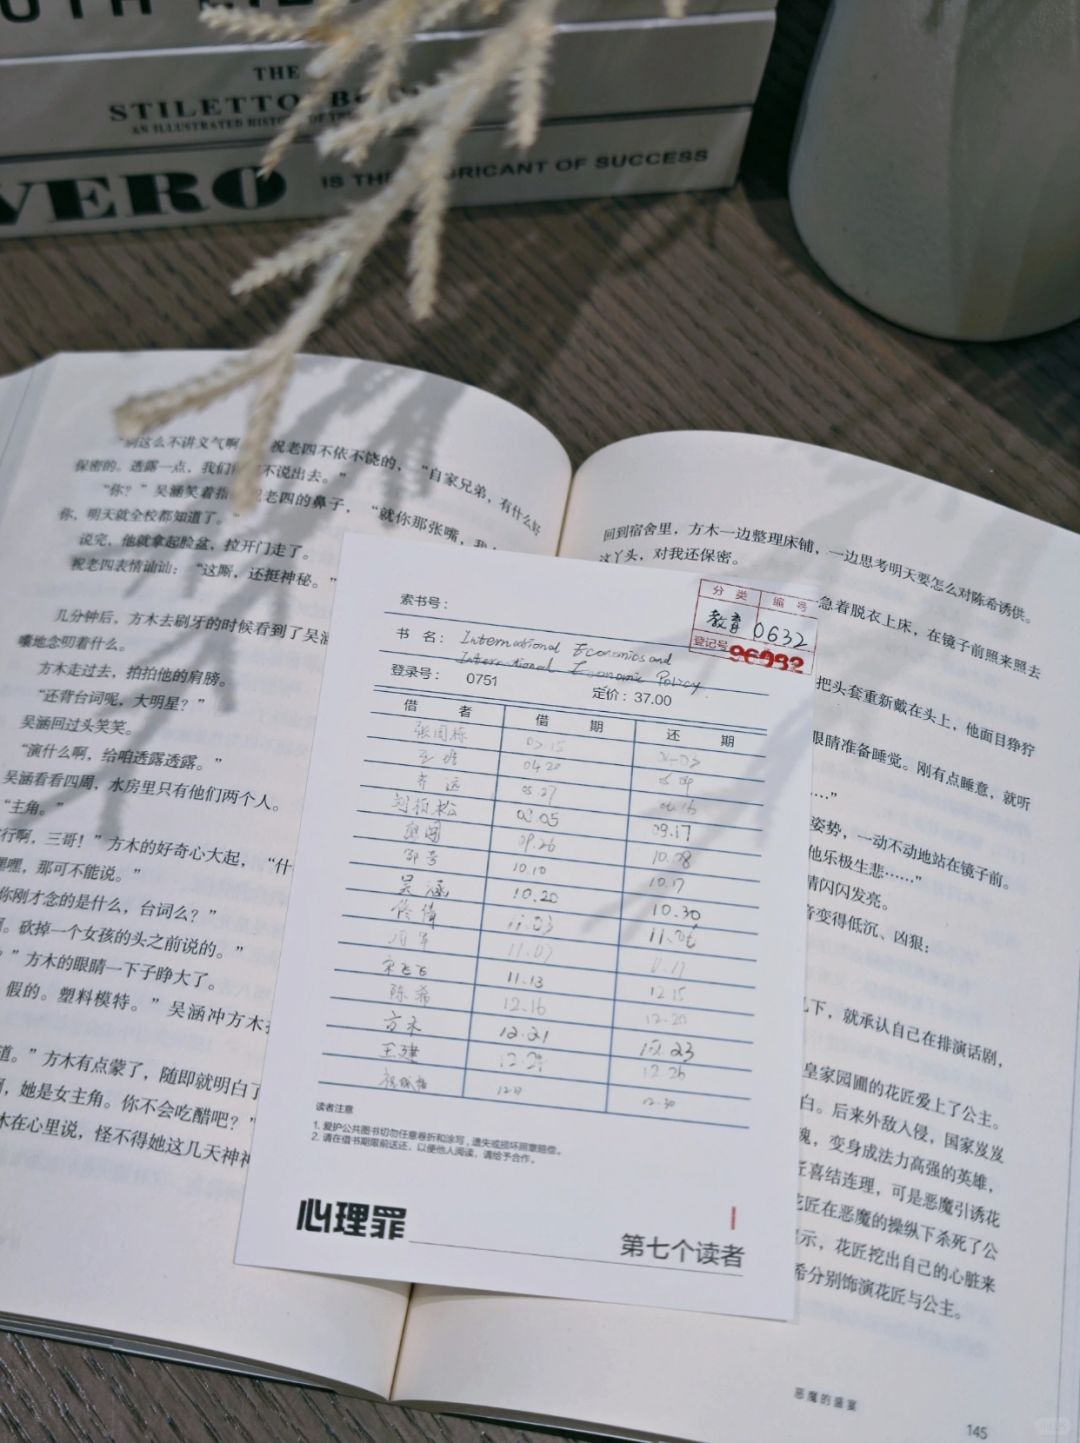 THE
STILETTO
AN ILLUSTRATED HISTORY OF THE
VERO
IS THE BRICANT OF SUCCESS
这么不讲义气啊 祝老四不依不饶的，“自家兄弟，有什么好
保密的。透露一点，我们 不说出去。”
“你？”吴涵笑着指 老四的鼻子，“就你那张嘴，我
你，明天就全校都知道了。”
说完，他就拿起脸盆，拉开门走了。
祝老四表情讪讪：“这厮，还挺神秘。”
几分钟后，方木去刷牙的时候看到了吴涵
嚷地念叨着什么。
方木走过去，拍拍他的肩膀。
“还背台词呢，大明星？”
吴涵回过头笑笑。
“演什么啊，给咱透露透露。”
吴涵看看四周，水房里只有他们两个人。
“主角。”
行啊，三哥！”方木的好奇心大起，“什
嘿嘿，那可不能说。”
你刚才念的是什么，台词么？”
砍掉一个女孩的头之前说的。”
”方木的眼睛一下子睁大了。
假的。塑料模特。”吴涵冲方木
道。”方木有点蒙了，随即就明白了
，她是女主角。你不会吃醋吧？”
木在心里说，怪不得她这几天神神
回到宿舍里，方木一边整理床铺，一边思考明天要怎么对陈希诱供。
这丫头，对我还保密。
急着脱衣上床，在镜子前照来照去
把头套重新戴在头上，他面目狰狞
眼睛准备睡觉。刚有点睡意，就听
……”
姿势，一动不动地站在镜子前。
他乐极生悲……”
睛闪闪发亮。
音变得低沉、凶狠：
下，就承认自己在排演话剧，
皇家园圃的花匠爱上了公主。
白。后来外敌入侵，国家岌岌
魂，变身成法力高强的英雄，
匠喜结连理，可是恶魔引诱花
花匠在恶魔的操纵下杀死了公
示，花匠挖出自己的心脏来
希分别饰演花匠与公主。
恶魔的盛宴
145
索书号：
分类 编号
教育 0632
登记号 96932
书 名： International Economics and
International Economic Policy.
登录号： 0751 定价：37.00
借 者 借 期 还 期
张国栋 03.15
04.20
齐远 05.27 06.16
刘柏松 08.05 09.17
09.26 10.08
10.10 10.17
吴涵 10.20 10.30
佟倩 11.03 11.06
11.07 11.11
宋飞飞 11.13 12.15
陈希 12.16 12.20
方木 12.21 12.23
王建 12.24 12.26
祝城强 12.30
读者注意
1. 爱护公共图书切勿任意卷折和涂写，遗失或损坏照章赔偿。
2. 请在借书期限前送还，以便他人阅读，请给予合作。
心理罪
第七个读者